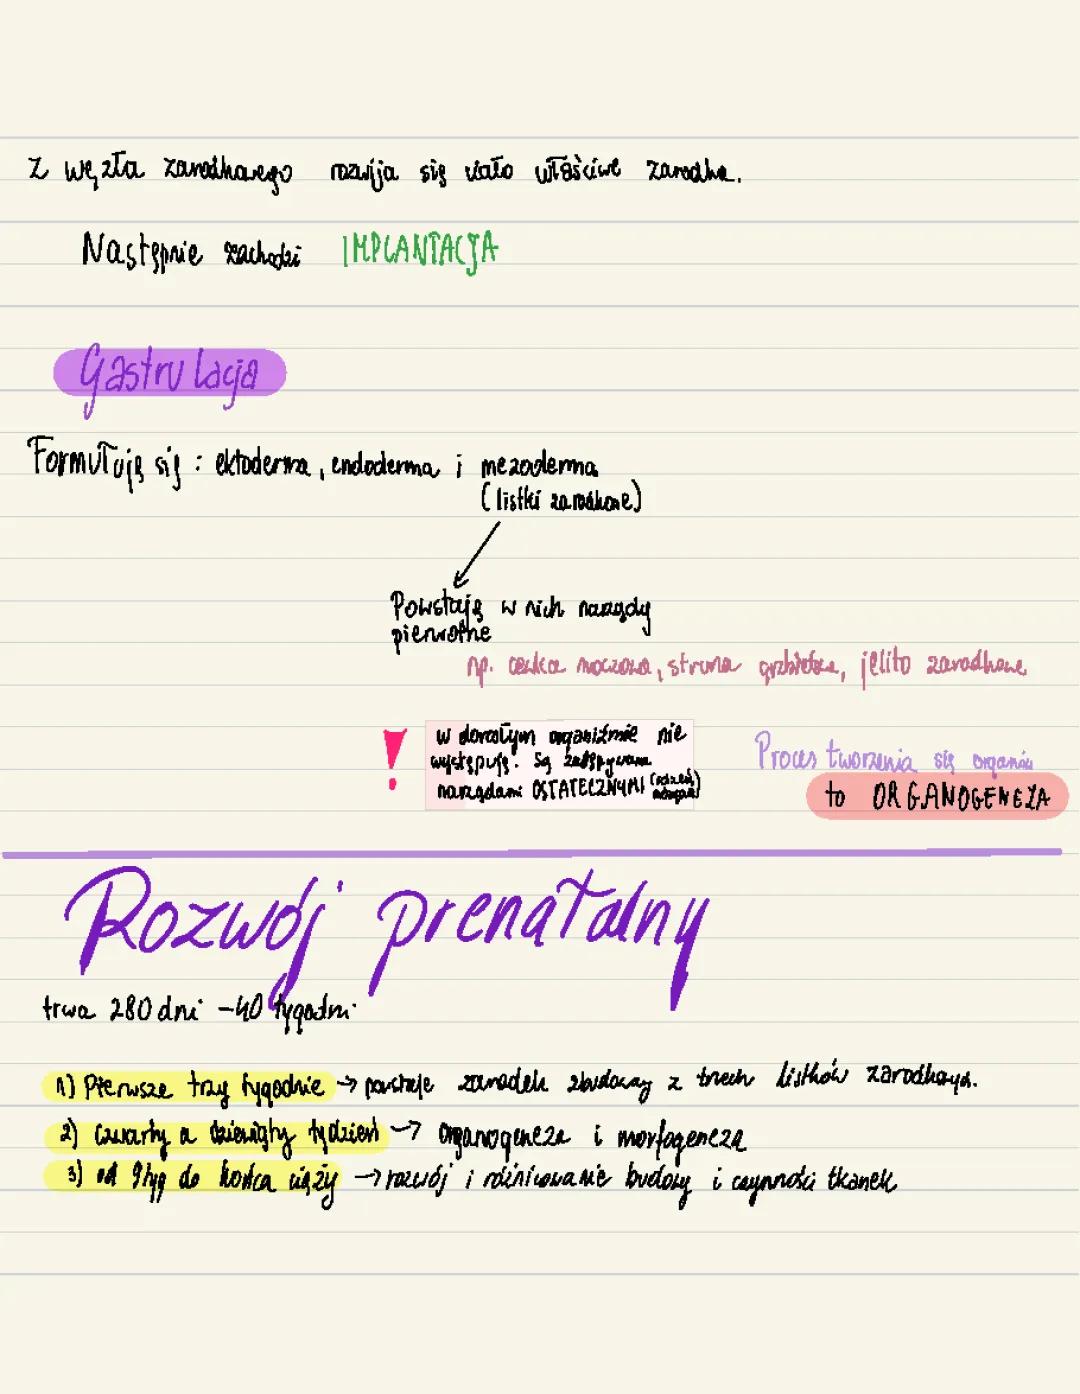 Z węzła zarodkowego rozwija się ciało właściwe zarodka.
Następnie zachodzi IMPLANTACJA
Gastrulacja
Formułują się : ektoderma, endoderma i mezoderma
(listki zarodkowe)
Powstają w nich narządy
pierwotne
np. cewka moczowa, struna grzbietowa, jelito zarodkowe
! w dorosłym organizmie nie
występują. Są zastępywane
narządami OSTATECZNYMI
Proces tworzenia się organów
to ORGANOGENEZA
Rozwój prenatalny
trwa 280 dni - 40 tygodni
1) Pierwsze trzy tygodnie → powstaje zarodek zbudowany z trzech listków zarodkowych.
2) czwarty a dziewiąty tydzień → organogeneza i morfogeneza
3) od 9tyg do końca ciąży → rozwój i różnicowanie budowy i czynności tkanek